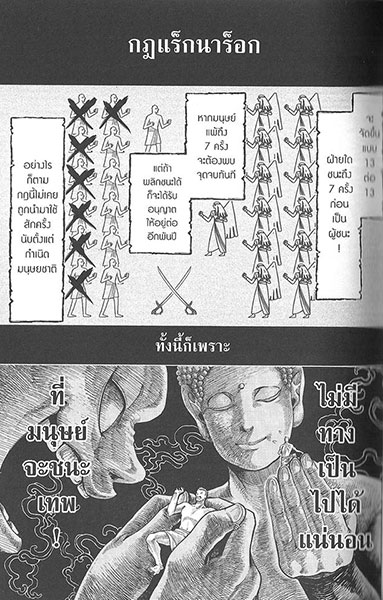 กฎแร็กนาร็อก
จะ
จัดขึ้น
แบบ
13
ต่อ
13
ฝ่ายใด
ชนะถึง
7 ครั้ง
ก่อน
เป็น
ผู้ชนะ
!
หากมนุษย์
แพ้ถึง
7 ครั้ง
จะต้องพบ
จุดจบทันที
แต่ถ้า
พลิกชนะได้
ก็จะได้รับ
อนุญาต
ให้อยู่ต่อ
อีกพันปี
อย่างไร
ก็ตาม
กฎนี้ไม่เคย
ถูกนำมาใช้
สักครั้ง
นับตั้งแต่
กำเนิด
มนุษยชาติ
ทั้งนี้ก็เพราะ
ไม่มี
ทาง
เป็น
ไปได้
แน่นอน
ที่
มนุษย์
จะชนะ
เทพ
!